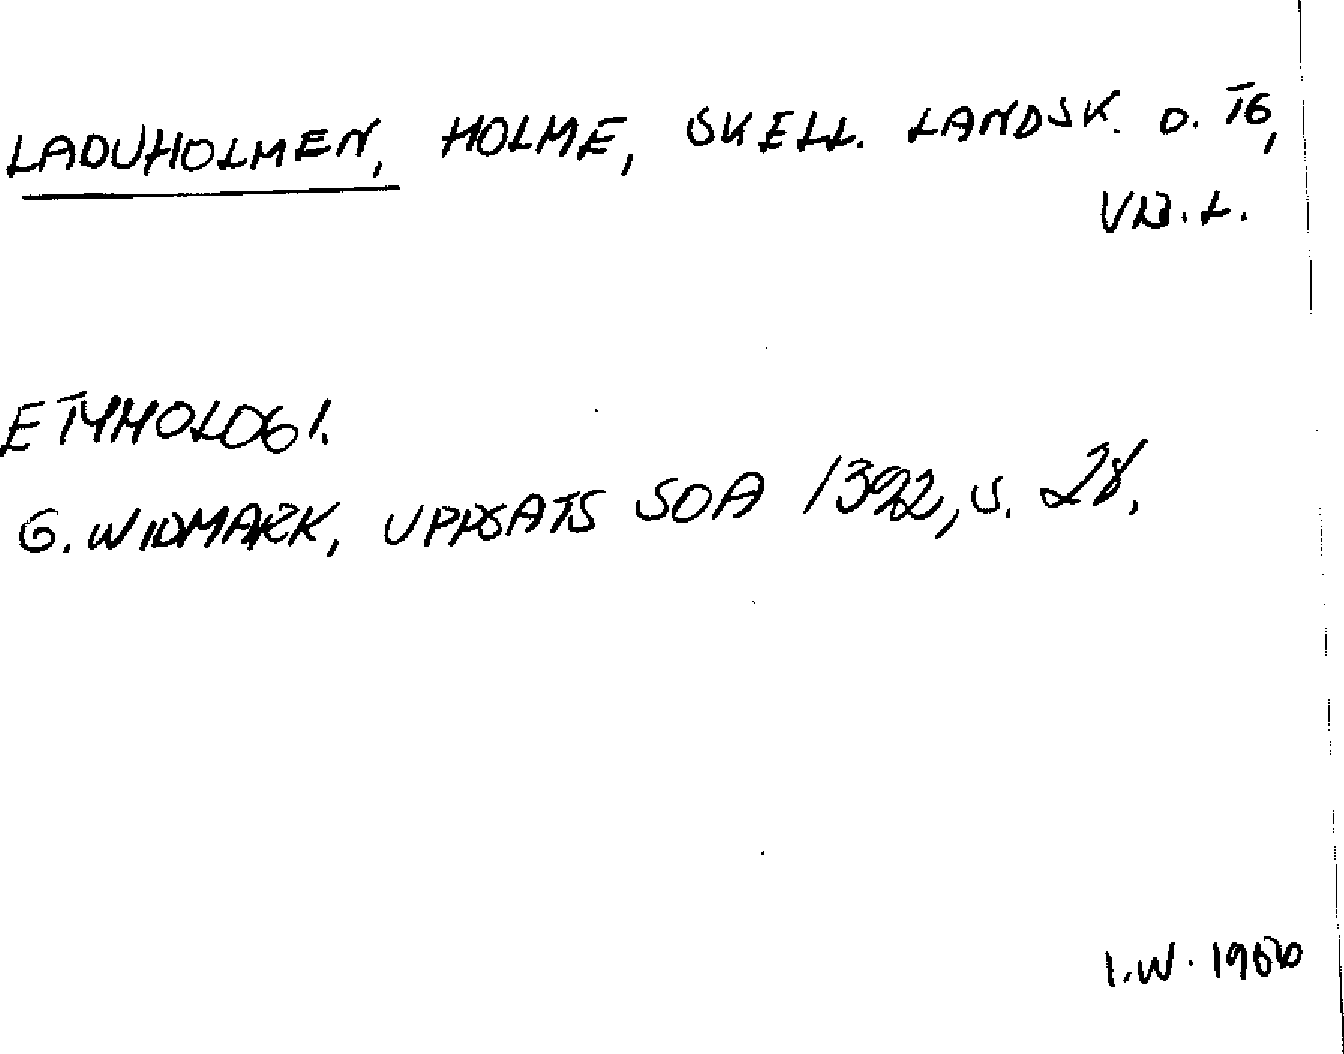 LADUHOLMEN, HOLME, SKELL. LANDSK. O. TG,
VB. L.
ETYMOLOGI.
G. WIDMARK, UPPSATS SOA 1392, S. 28.
I.W. 1966